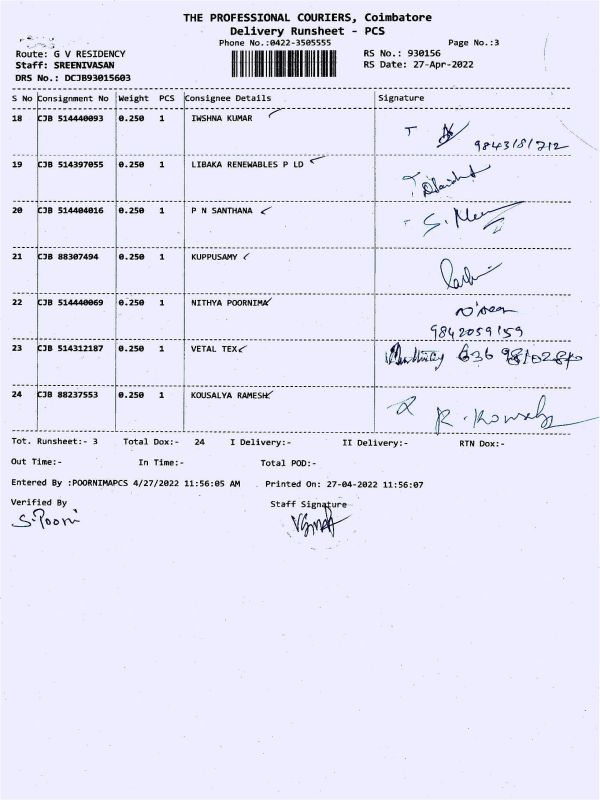 THE PROFESSIONAL COURIERS, Coimbatore
Delivery Runsheet - PCS
Phone No.:0422-3505555 Page No.:3
Route: G V RESIDENCY RS No.: 930156
Staff: SREENIVASAN RS Date: 27-Apr-2022
DRS No.: DCJB93015603
S No Consignment No Weight PCS Consignee Details Signature
18 CJB 514440093 0.250 1 IWSHNA KUMAR
19 CJB 514397055 0.250 1 LIBAKA RENEWABLES P LD
20 CJB 514404016 0.250 1 P N SANTHANA
21 CJB 88307494 0.250 1 KUPPUSAMY
22 CJB 514440069 0.250 1 NITHYA POORNIMA
9842059159
23 CJB 514312187 0.250 1 VETAL TEX
24 CJB 88237553 0.250 1 KOUSALYA RAMESH
Tot. Runsheet:- 3 Total Dox:- 24 I Delivery:- II Delivery:- RTN Dox:-
Out Time:- In Time:- Total POD:-
Entered By :POORNIMAPCS 4/27/2022 11:56:05 AM Printed On: 27-04-2022 11:56:07
Verified By Staff Signature
S.Poorni